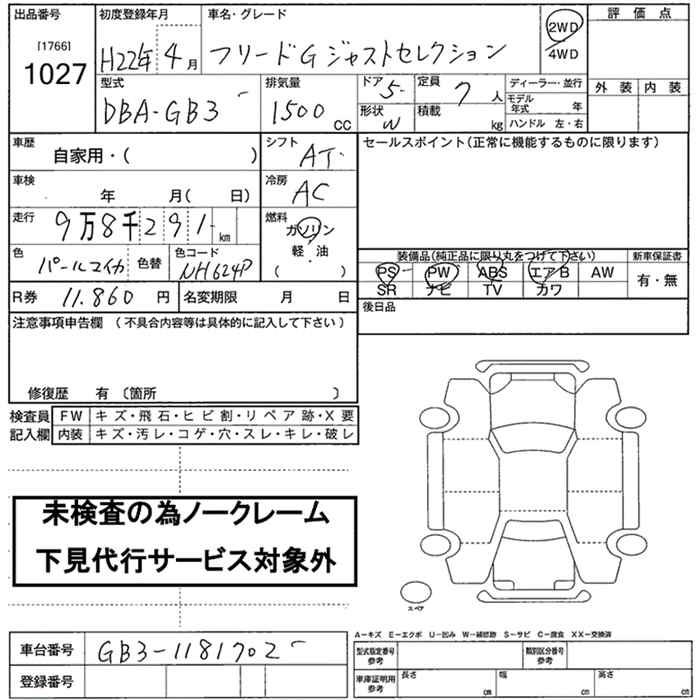 出品番号
[1766]
1027
初度登録年月
H22年 4月
車名・グレード
フリードG ジャストセレクション
2WD
4WD
評価点
外装 内装
型式
DBA-GB3
排気量
1500 CC
ドア 5
形状 W
定員 7 人
積載 kg
ディーラー・並行
モデル年式 年
ハンドル 左・右
車歴
自家用・( )
シフト
AT
セールスポイント(正常に機能するものに限ります)
車検
年 月( 日)
冷房
AC
走行
9万8千291 km
燃料
ガソリン
軽・油
( )
色
パールマイカ
色替
色コード
NH624P
装備品(純正品に限り丸をつけて下さい)
PS PW ABS エアB AW
SR ナビ TV カワ
新車保証書
有・無
R券 11.860 円
名変期限 月 日
後日品
注意事項申告欄 (不具合内容等は具体的に記入して下さい)
修復歴 有 〔箇所 〕
検査員
記入欄
FW キズ・飛石・ヒビ割・リペア跡・X要
内装 キズ・汚レ・コゲ・穴・スレ・キレ・破レ
未検査の為ノークレーム
下見代行サービス対象外
スペア
A-キズ E-エクボ U-凹み W-補修跡 S-サビ C-腐食 XX-交換済
車台番号 GB3-1181702
登録番号
型式指定番号
参考
類別区分番号
参考
車庫証明用
参考
長さ cm
幅 cm
高さ cm